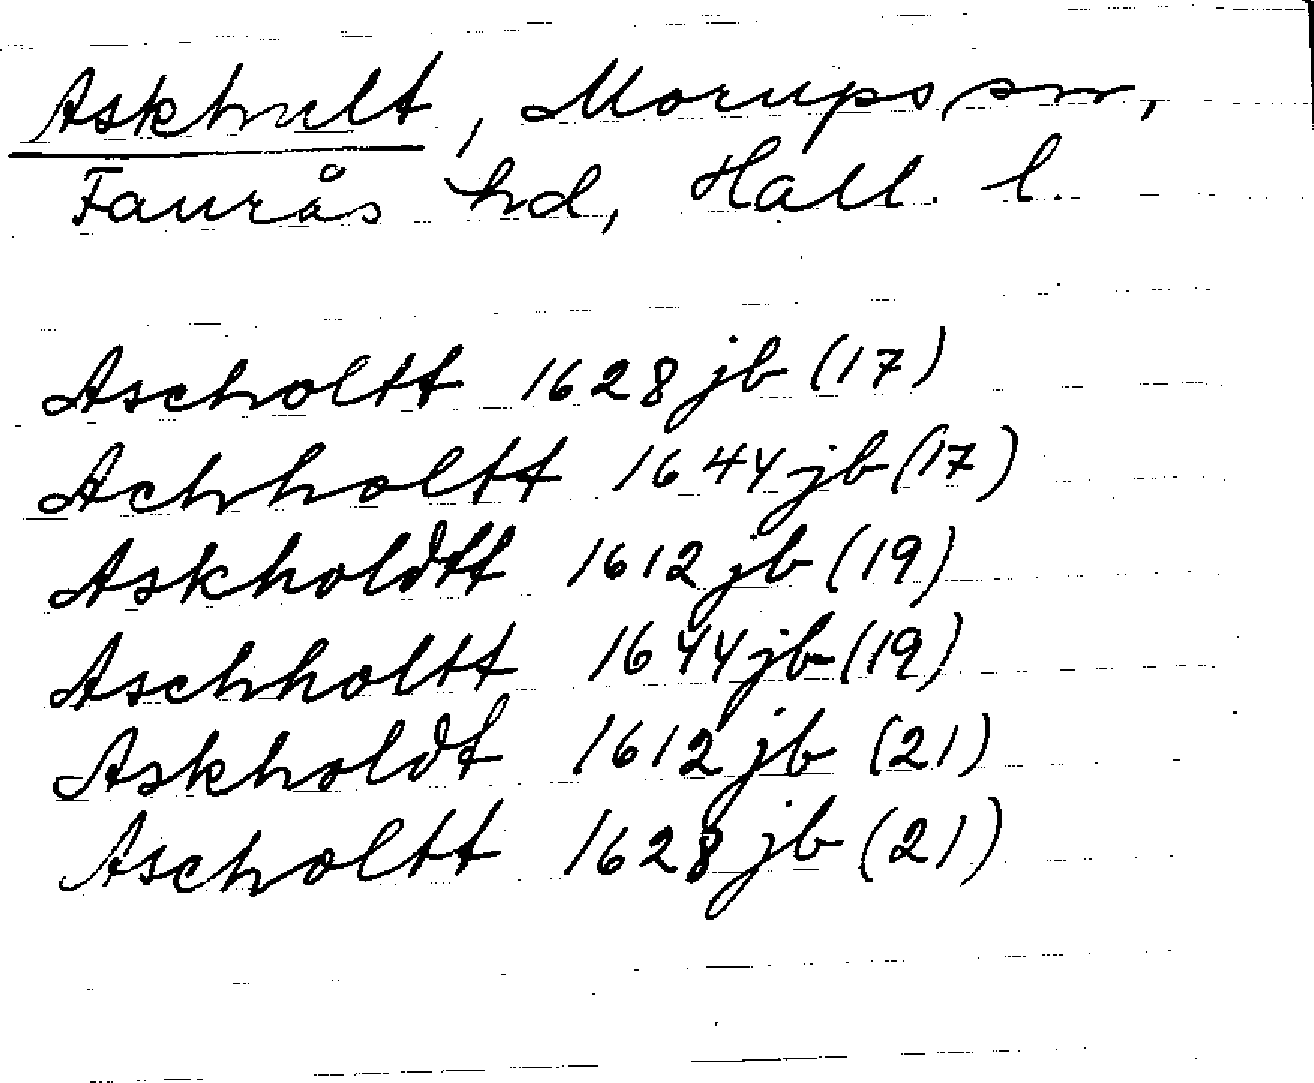 Askhult, Morups sn,
Faurås hd, Hall. l.
Ascholtt 1628 jb (17)
Achholtt 1644 jb (17)
Askholdtt 1612 jb (19)
Aschholtt 1644 jb (19)
Askholdt 1612 jb (21)
Ascholtt 1628 jb (21)